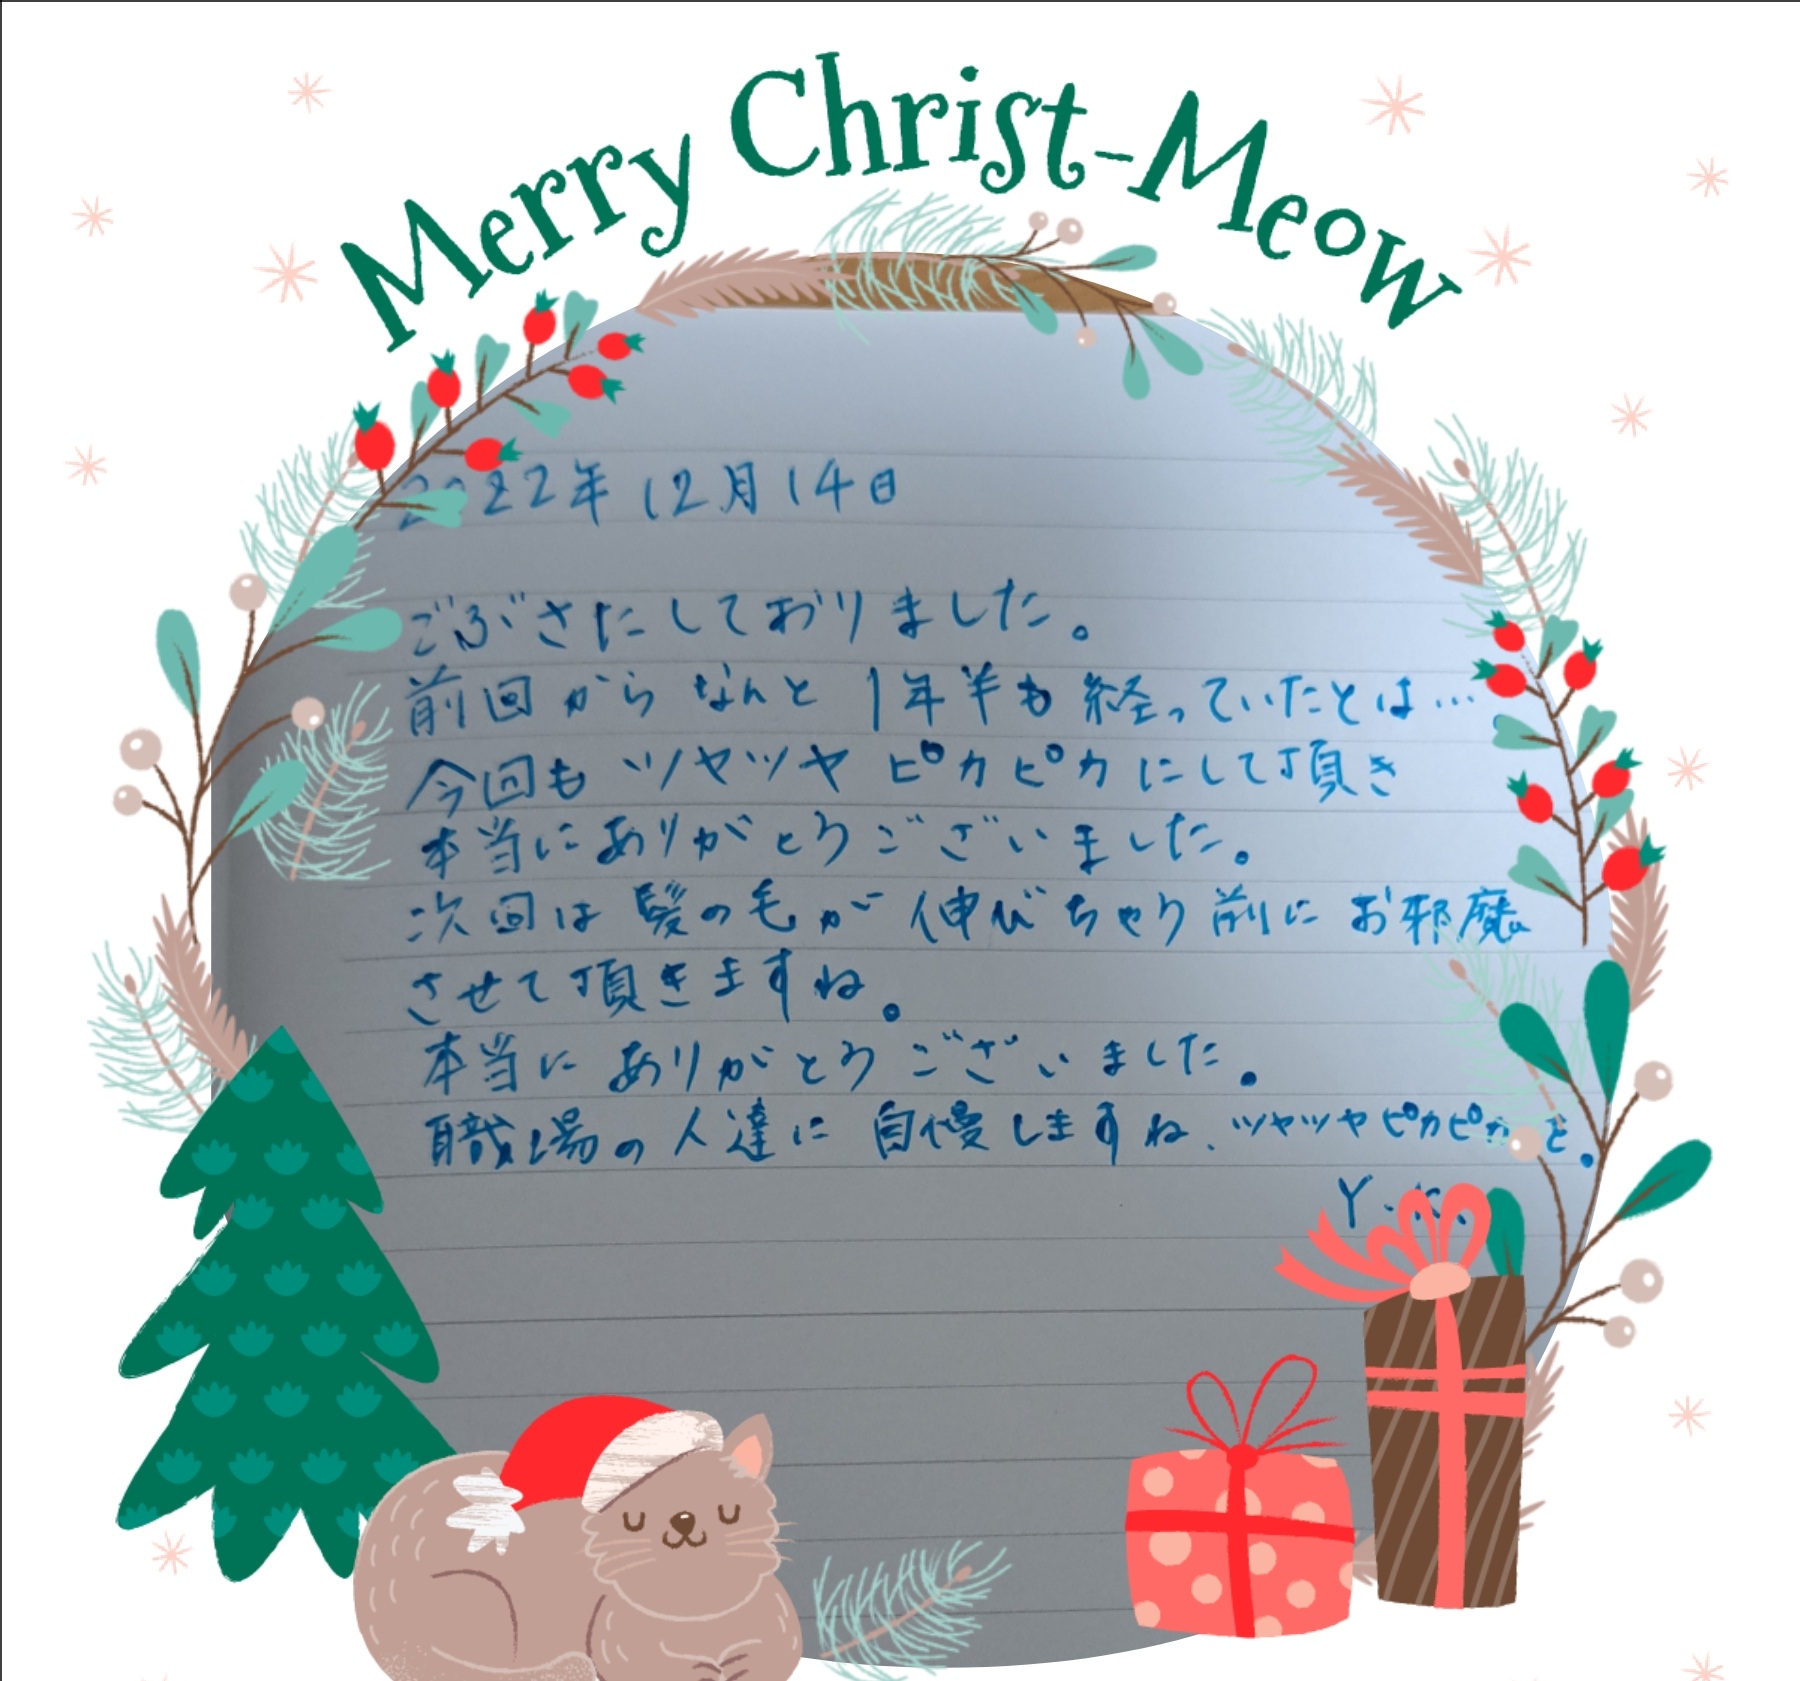 Merry Christ-Meow
2022年12月14日
ごぶさたしておりました。
前回からなんと1年半も経っていたとは…
今回もツヤツヤピカピカにして頂き
本当にありがとうございました。
次回は髪の毛が伸びちゃう前にお邪魔
させて頂きますね。
本当にありがとうございました。
職場の人達に自慢しますね、ツヤツヤピカピカと。
Y.